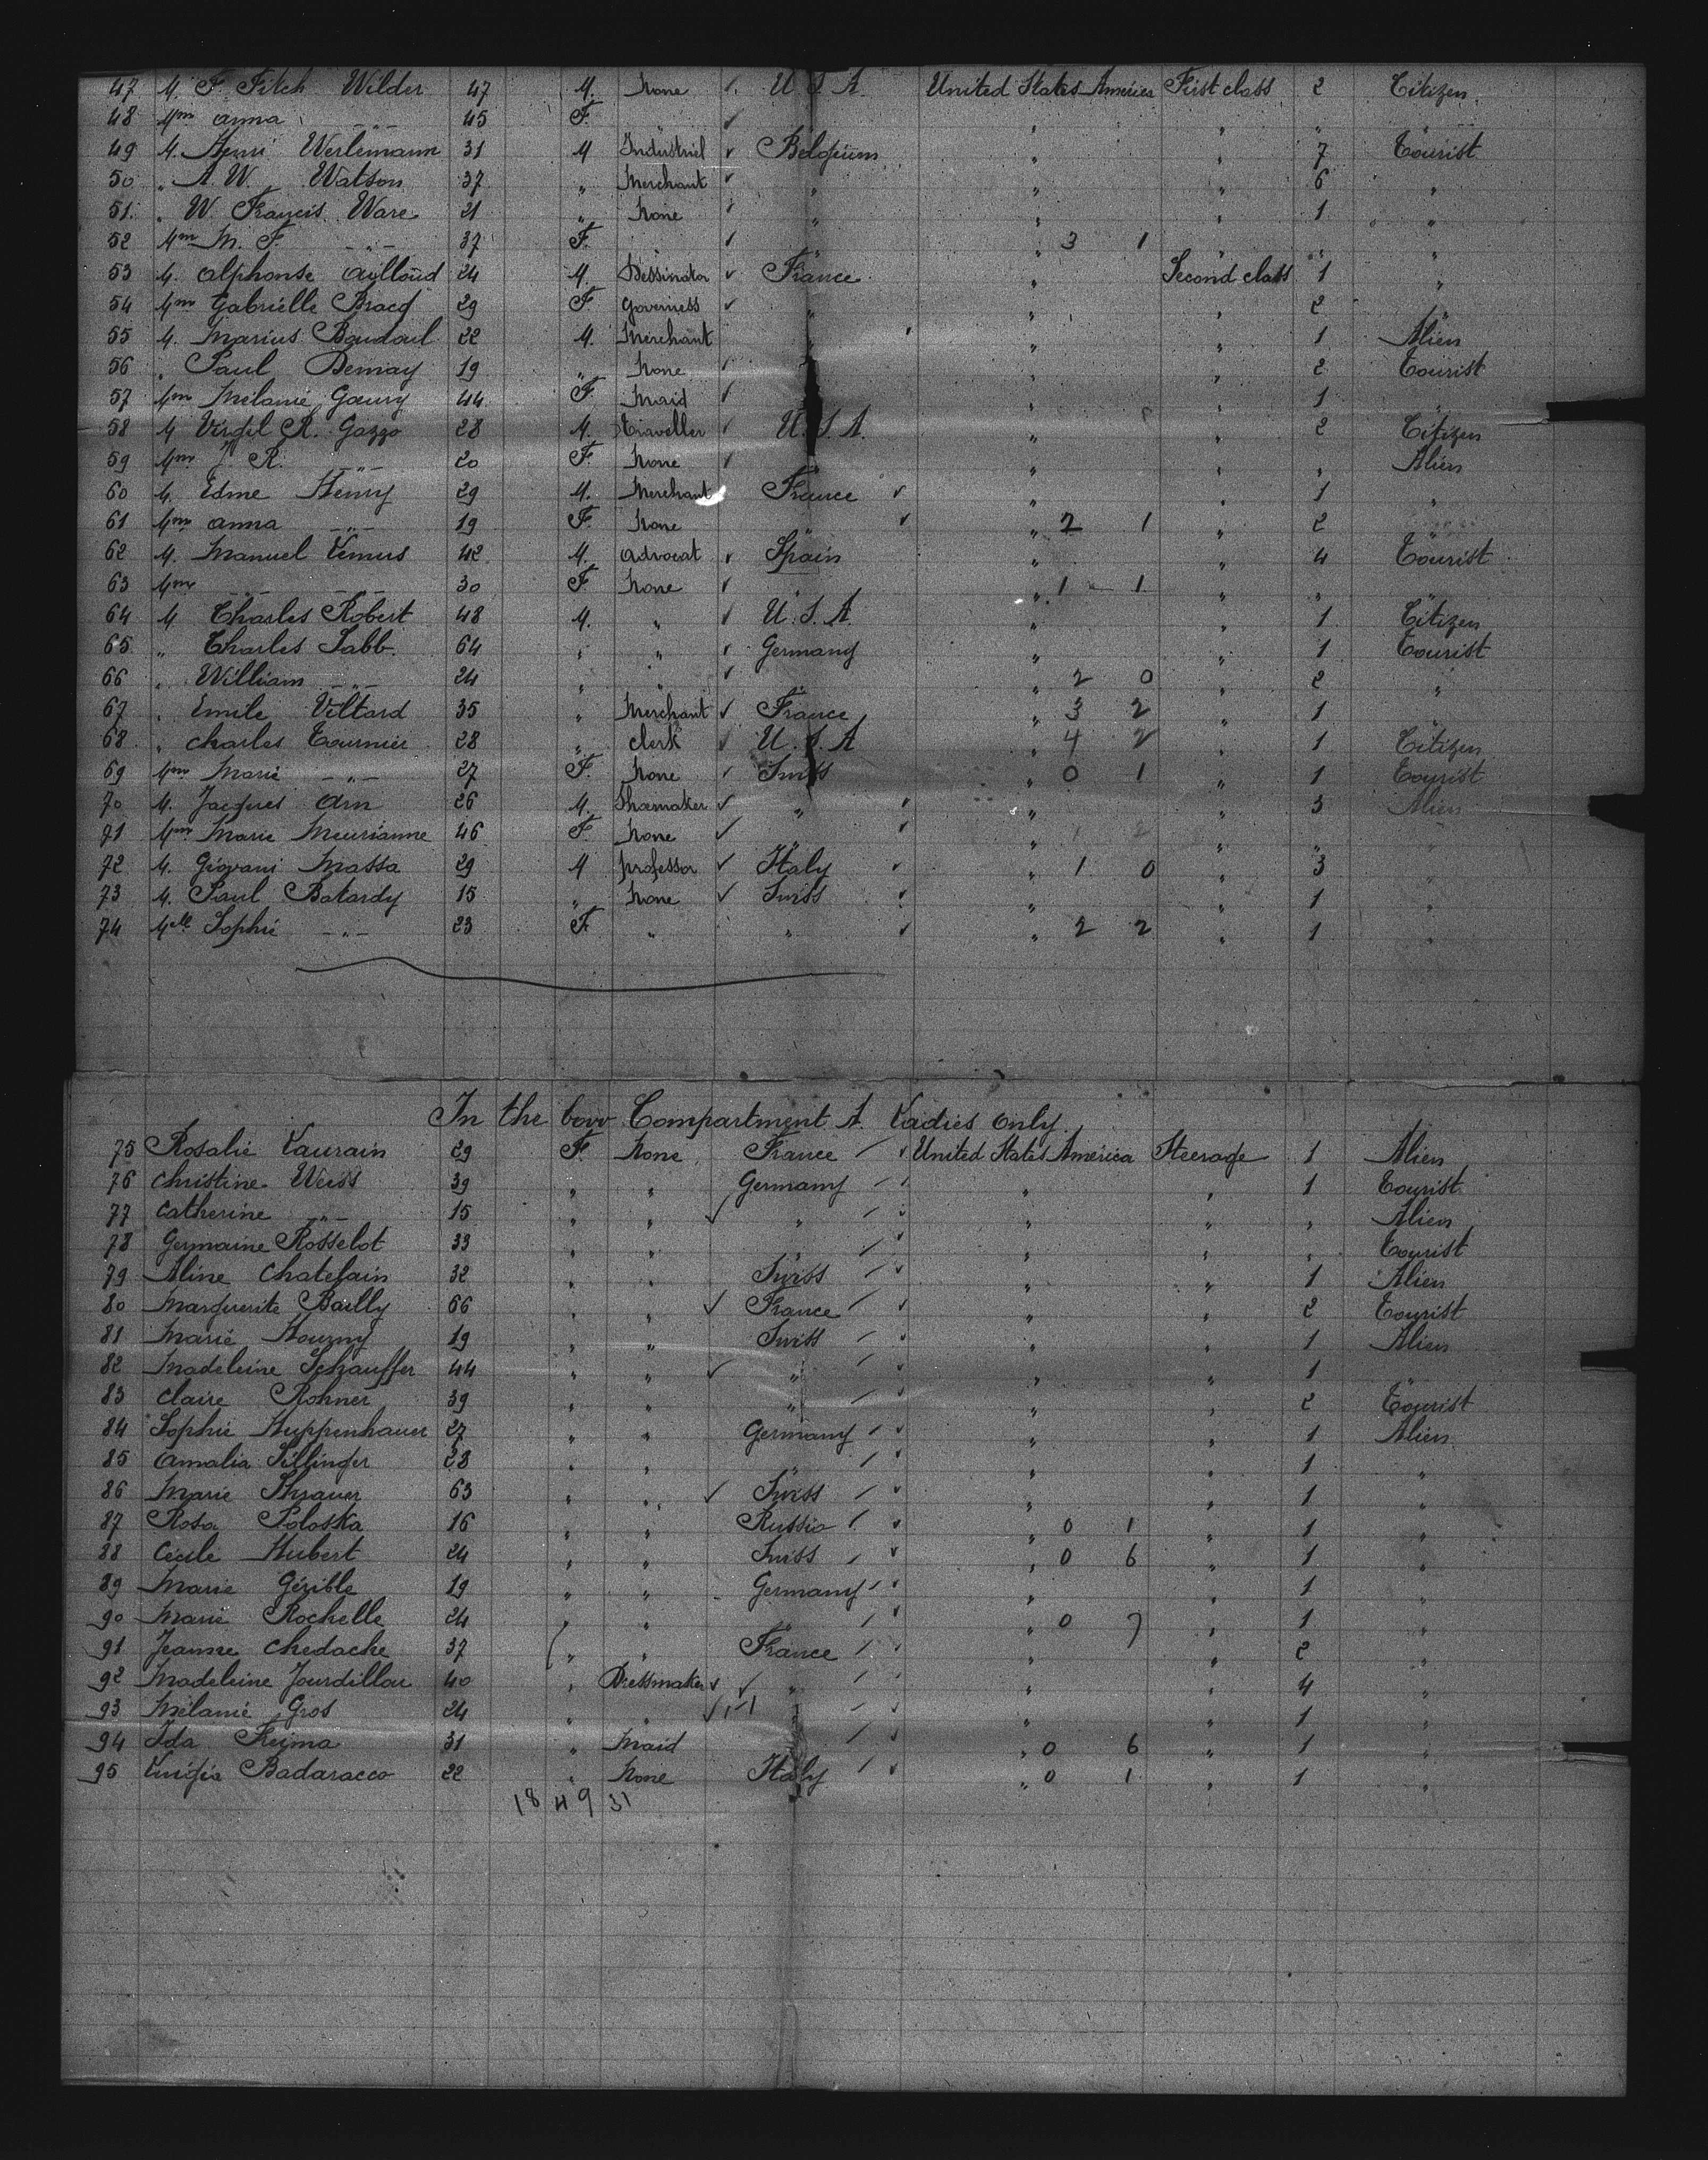 47 M. F. Fitch Wilder 47 M. None U.S.A. United States America First class 2 Citizen
48 Mm Anna -"- 45 F. " " " " "
49 M. Henri Werlemann 31 M Industriel Belgium " " 7 Tourist
50 " A. W. Watson 37 " Merchant " " " 6 "
51 " W. Francis Ware 21 " None " " " 1 "
52 Mm M. F. -"- 37 F. " " 3 1 " " "
53 M. Alphonse 24 M. Dessinator France " Second class 1 "
54 Mm Gabrielle Bracq 29 F. Governess " " " 2 "
55 M. Marius Baudouil 22 M. Merchant " " " 1 Alien
56 " Paul Demay 19 " None " " 2 Tourist
57 Mm Mélanie Gaury 44 F. Maid " " 1 "
58 M Virgil R. Gazzo 28 M. Traveller U.S.A. " " 2 Citizen
59 Mm J. R. -"- 20 F. None " " " " Alien
60 M. Edme Henry 29 M. Merchant France " " 1 "
61 Mm Anna -"- 19 F. None " " 2 1 " 2 "
62 M. Manuel 42 M. Advocat Spain " " 4 Tourist
63 Mm -"- 30 F. None " " 1 1 " " "
64 M Charles Robert 48 M. " U.S.A. " 1 Citizen
65 " Charles Sabb. 64 " " Germany " " 1 Tourist
66 " William -"- 24 " " " " 2 0 " 2 "
67 " Emile Viltard 35 " Merchant France " 3 2 " 1 "
68 " Charles Tournier 28 " Clerk U.S.A " 4 2 " 1 Citizen
69 Mm Marie -"- 27 F. None Swiss " 0 1 " 1 Tourist
70 M. Jacques Arn 26 M. Shoemaker " " " 3 Alien
71 Mm Marie Meurianne 46 F. None " " 1 2 " " "
72 M. Giovani Massa 29 M Professor Italy " 1 0 " 3 "
73 M. Paul Batardy 15 " None Swiss " " 1 "
74 Melle Sophie -"- 23 F. " " " 2 2 " 1 "
In the bow Compartment A. Ladies only.
75 Rosalie Laurain 29 F. None France United States America Steerage 1 Alien
76 Christine Weiss 39 " " Germany " " 1 Tourist
77 Catherine -"- 15 " " " " " " Alien
78 Germaine Rosselot 33 " " " " " " Tourist
79 Aline Chatelain 32 " " Swiss " " 1 Alien
80 Marguerite Bailly 66 " " France " " 2 Tourist
81 Marie Hourny 19 " " Swiss " " 1 Alien
82 Madeleine Schauffer 44 " " " " " 1 "
83 Claire Rohner 39 " " " " " 2 Tourist
84 Sophie Huppenhauer 27 " " Germany " " 1 Alien
85 Amalia Sillinger 28 " " " " " 1 "
86 Marie 63 " " Swiss " " 1 "
87 Rosa Poloska 16 " " Russia " 0 1 " 1 "
88 Cécile Hubert 24 " " Swiss " 0 6 " 1 "
89 Marie Gérible 19 " " Germany " " 1 "
90 Marie Rochelle 24 " " " 0 7 " 1 "
91 Jeanne Chedache 37 " " France " " 2 "
92 Madeleine Jourdillau 40 " Dressmaker " " " 4 "
93 Mélanie Gros 24 " " " " 1 "
94 Ida Frejma 31 " Maid " 0 6 " 1 "
95 Badaracco 22 " None Italy " 0 1 " 1 "
18 49 31